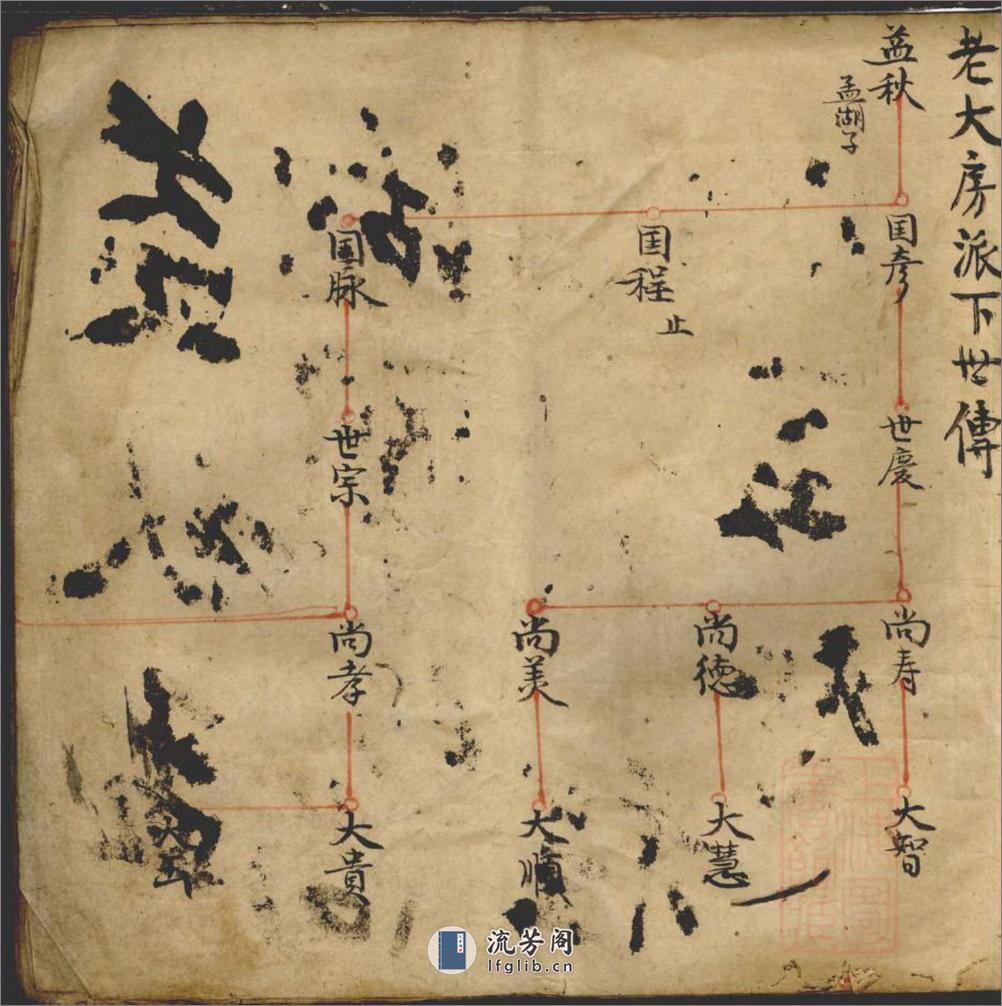 老大房派下世傳
益秋
孟湖子
国彦
国程
止
国脉
世慶
世宗
尚寿
尚德
尚美
尚孝
大智
大慧
大順
大貴
流芳阁
lfglib.cn